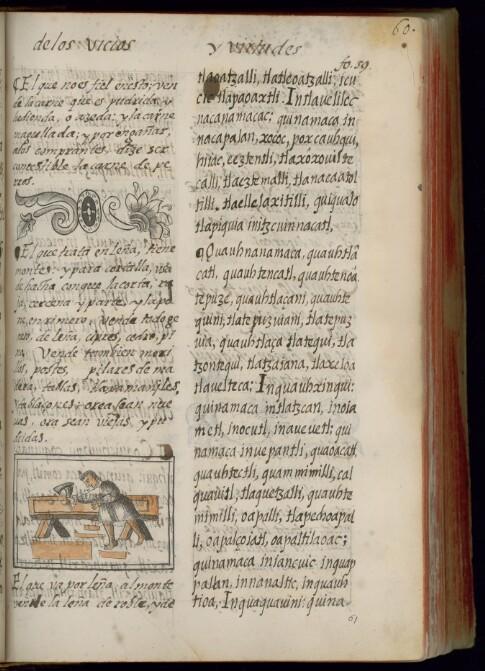 60.
de los vicios y virtudes
fo. 59
El que no es fiel en esto; ven
de la carne que es pudrida, y
hedienda, o azeda: y la carne
magullada; y por engañar,
alos comprantes, dize ser
comestible la carne de pe
rros.
El que trata en leña, tiene
montes: y para cortalla, usa
de hacha conque la corta,
cercena y parte, y la po
ne en rimero. Vende todo ge
nero de leña, cipres, cedro, pi
no, Vende tambien mori
llos, postes, pilares de ma
dera, tablas, tlaxamaniles,
y tablaçones: ora sean nue
uas, ora sean viejas, y po
dridas.
El que va por leña, al monte
vende la leña de roble, y de
tlaoatzalli, tlatleoatzalli, icu
cic tlapaoaxtli. In tlaveliloc
nacanamacac; quinamaca in
nacapalan, xococ, poxcauhqui,
hiiac, eeztentli, tlaxoxouilte
calli, tlaeztemalli, tlanacaatol
tilli. tlaellelaxitilli, quiqualo
tlapiquia in itzcuinnacatl.
Quauhnanamaca, quauhtla
catl, quauhtencatl, quauhteneoa
tepuze, quauhtlaçani, quauhte
quini; tlatepuzuiani, tlatepuz
uia, quauhtlaça tlatequi, tla
tzontequi, tlatzatzana, tlaxeloa
tlavelteca; In quauhxinqui:
quinamaca in tlatzcan, in oia
metl, in ocutl, in auevetl: qui
namaca in vepantli, quaoacatl
quauhtectli, quammimilli, cal
quavitl, tlaquetzalli, quauhte
mimilli, oapalli, tlapechoapal
li, oapalçoiatl, oapaltilaoac;
quinamaca in iancuic in quap
palan, in nanaltic, in quauh
tioa, In quaquavini: quina
61